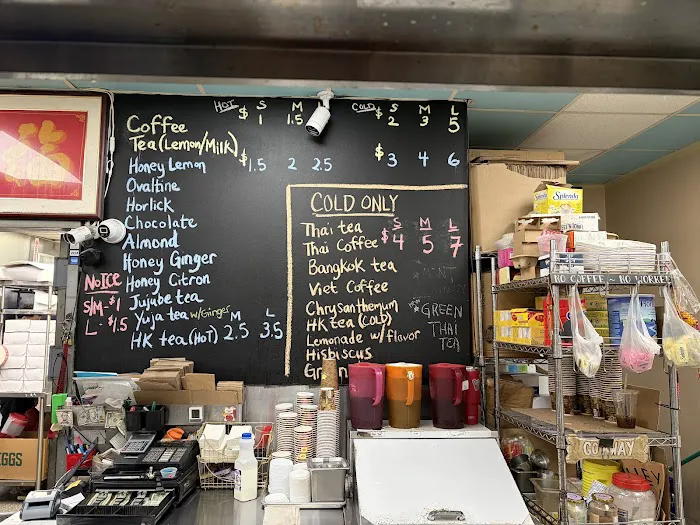 HOT S M COLD S M L
Coffee $ 1 1.5 $ 2 3 5
Tea (Lemon/Milk)
Honey Lemon $1.5 2 2.5 $3 4 6
Ovaltine
Horlick
Chocolate
Almond
Honey Ginger
Honey Citron
Jujube tea
Yuja tea w/Ginger M L
HK tea (HOT) 2.5 3.5
NoICE
S/M - $1
L - $1.5
COLD ONLY
Thai tea S M L
Thai Coffee $4 5 7
Bangkok tea
Viet Coffee
Chrysanthemum
HK tea (COLD)
Lemonade w/ flavor
Hisbiscus
MINT
GREEN
THAI
TEA
福
Splenda
NO COFFEE ~ NO WORKEE
GO AWAY
EGGS